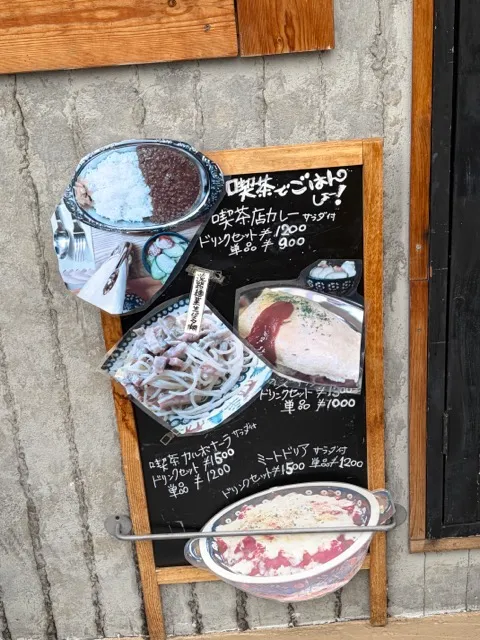 喫茶でごはん
しょ!
喫茶店カレー サラダ付
ドリンクセット ¥1200
単品 ¥900
ドリンクセット ¥1300
単品 ¥1000
喫茶カルボナーラ サラダ付
ドリンクセット ¥1500
単品 ¥1200
ミートドリア サラダ付
ドリンクセット ¥1500 単品 ¥1200